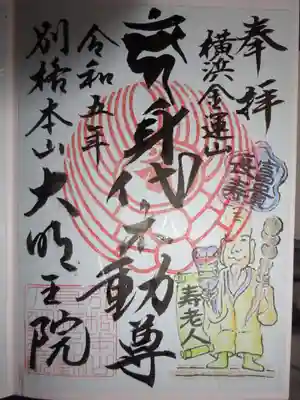 奉拝
横浜金運山
身代不動尊
令和五年
別格本山大明王院
富貴
長寿
寿老人